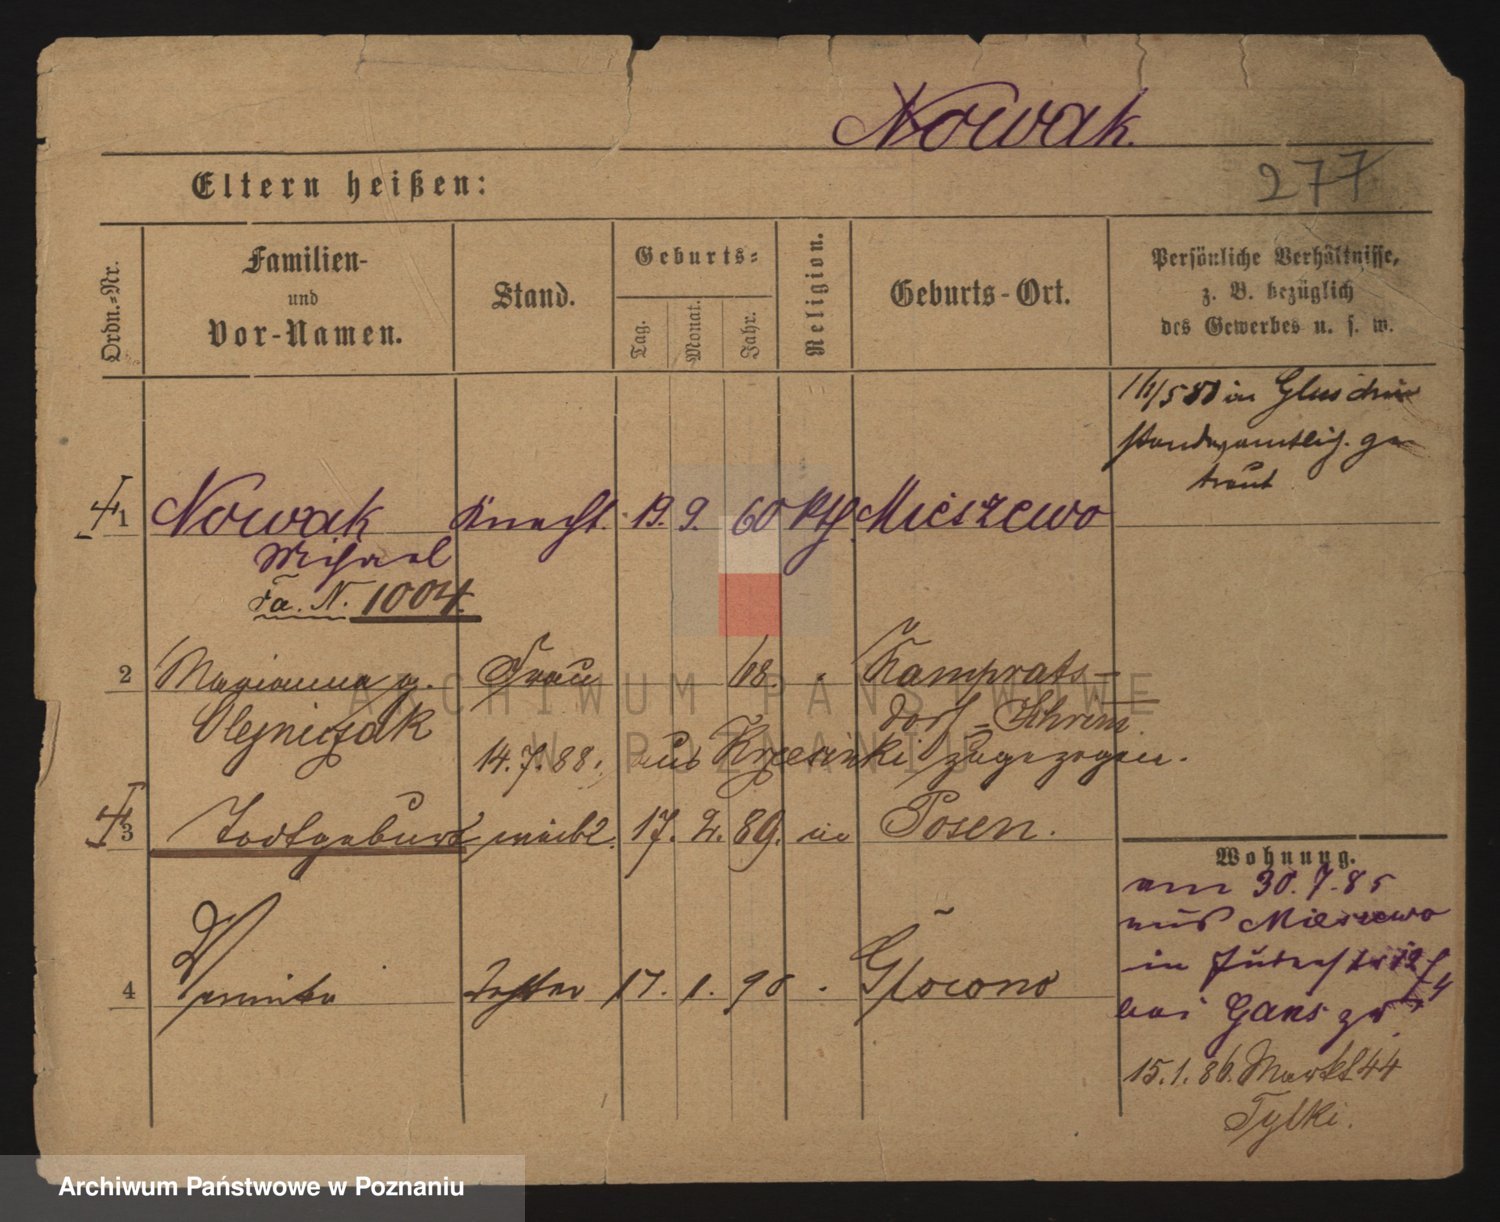 Nowak.
277
Eltern heißen:
Ordn.-Nr.
Familien-
und
Vor-Namen.
Stand.
Geburts-
Tag.
Monat.
Jahr.
Religion.
Geburts-Ort.
Persönliche Verhältnisse,
z. B. bezüglich
des Gewerbes u. s. w.
in Gluschin
standesamtlich ge-
traut
1 Nowak Knecht. 19. 9. 60 kth. Mieszewo
Michael
Fa. N. 1004.
2 Marianna g. Frau 68. " Kamprats-
Olejniczak dorf - Schrim
14.7.88. aus Krzesinki zugezogen.
3 Todtgeburt weibl. 17. 2. 89. in Posen.
4 Tochter 17. 1. 90 .
Wohnung.
am 30.7.85
aus Mieszewo
in Judenstr 12/
bei Gans
15.1.86. Markt 44
Tylki.
ARCHIWUM PAŃSTWOWE
W POZNANIU
Archiwum Państwowe w Poznaniu